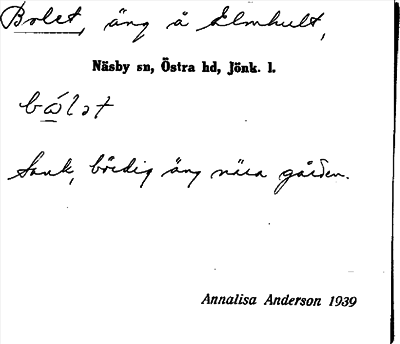 Bolet, äng å Elmhult,
Näsby sn, Östra hd, Jönk. l.
bώlət
Sank, bördig äng nära gården.
Annalisa Anderson 1939